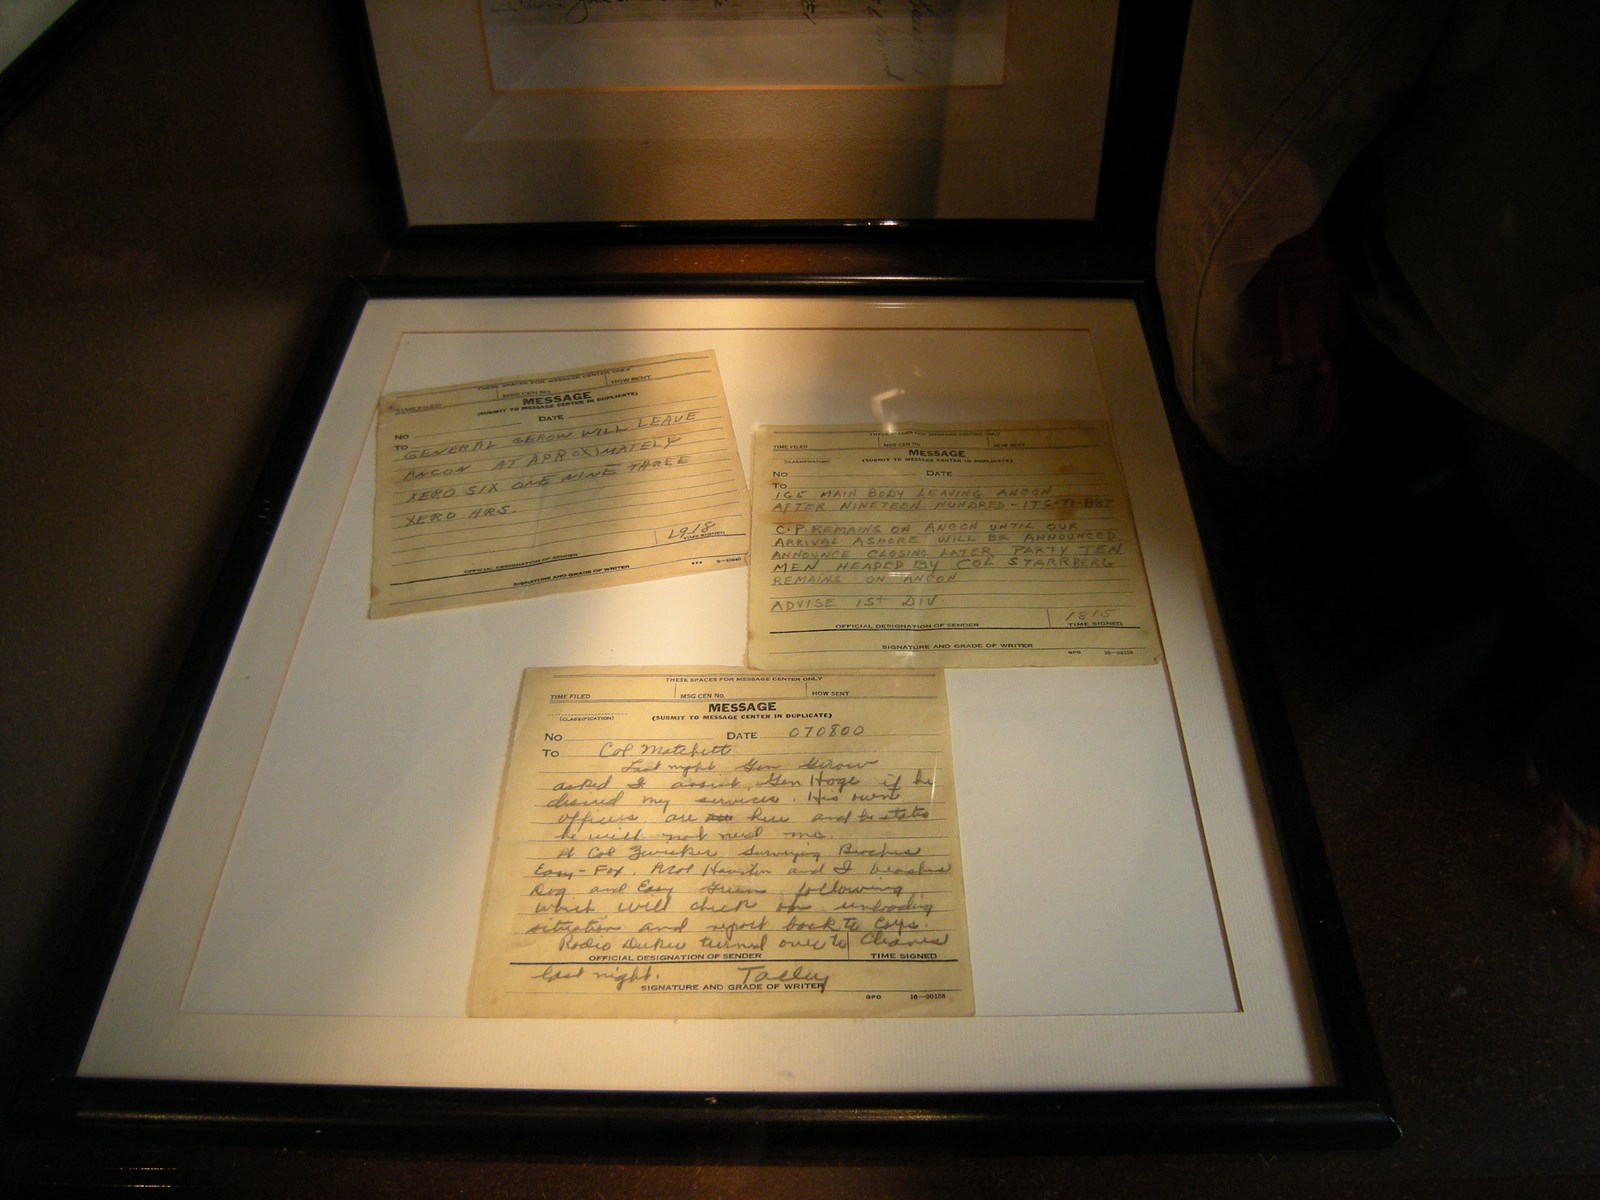 THESE SPACES FOR MESSAGE CENTER ONLY
TIME FILED MSG CEN No. HOW SENT
MESSAGE
(SUBMIT TO MESSAGE CENTER IN DUPLICATE)
No DATE
To
GENERAL GEROW WILL LEAVE
ANCON AT APROXIMATELY
XERO SIX ONE NINE THREE
XERO HRS.
1918
TIME SIGNED
OFFICIAL DESIGNATION OF SENDER
SIGNATURE AND GRADE OF WRITER
GPO
THESE SPACES FOR MESSAGE CENTER ONLY
TIME FILED MSG CEN No. HOW SENT
MESSAGE
(CLASSIFICATION) (SUBMIT TO MESSAGE CENTER IN DUPLICATE)
No DATE
To
MAIN BODY LEAVING ANCON
AFTER NINETEEN HUNDRED -
C.P REMAINS ON ANCON UNTIL OUR
ARRIVAL ASHORE WILL BE ANNOUNCED
ANNOUNCE CLOSING LATER PARTY TEN
MEN HEADED BY COL STARRBERG
REMAINS ON ANCON
ADVISE 1st DIV.
1815
OFFICIAL DESIGNATION OF SENDER TIME SIGNED
SIGNATURE AND GRADE OF WRITER
GPO 16-20158
THESE SPACES FOR MESSAGE CENTER ONLY
TIME FILED MSG CEN No. HOW SENT
MESSAGE
(CLASSIFICATION) (SUBMIT TO MESSAGE CENTER IN DUPLICATE)
No DATE 070800
To Col Matchett
Last night Gen Gerow
asked I assist Gen Hoge if he
desired my services. His own
officers are here and he states
he will not need me.
Lt Col Zwicker surveying Beaches
Easy-Fox. Houston and I beaches
Dog and Easy Green following
which will check on unloading
situation and report back to Corps.
Radio Dukw turned over to Cleaves
OFFICIAL DESIGNATION OF SENDER TIME SIGNED
last night. Talley
SIGNATURE AND GRADE OF WRITER
GPO 16-20158